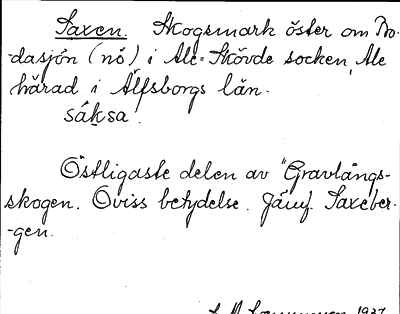 Saxen. Skogsmark öster om Bo-
-dasjön (nö) i Ale-Skövde socken, Ale
härad i Älfsborgs län.
sáksa
Östligaste delen av "Gravlångs-
skogen. Oviss betydelse. Jämf. Saxeber-
-gen.
1937